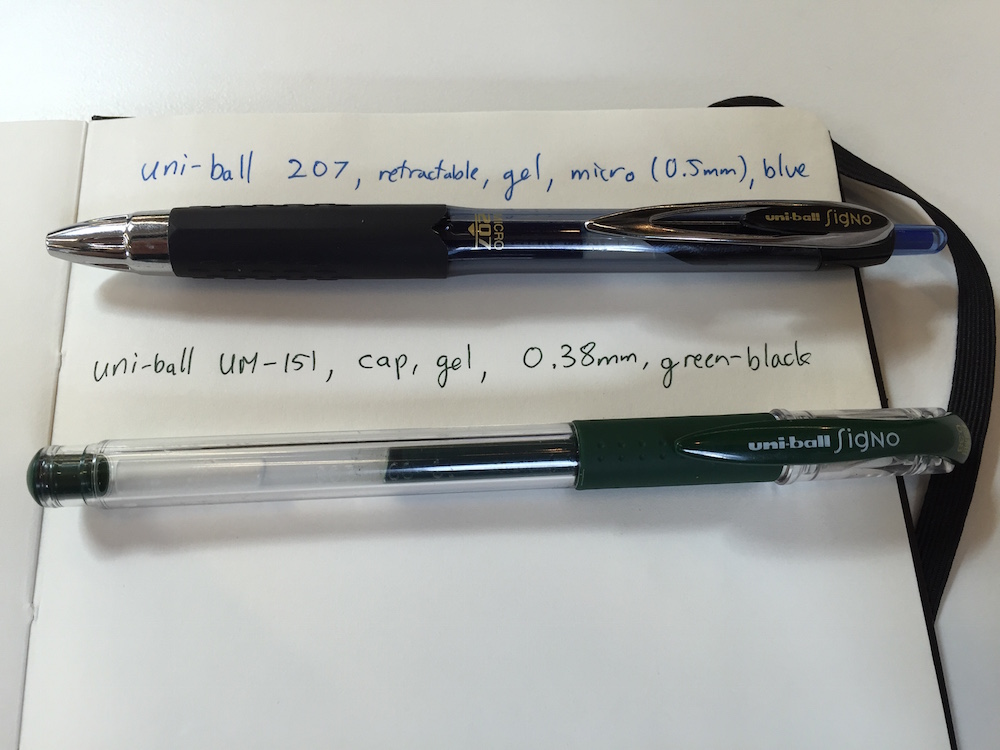 uni-ball 207, retractable, gel, micro (0.5mm), blue
MICRO
207
uni-ball SigNO
uni-ball UM-151, cap, gel, 0.38mm, green-black
uni-ball SigNO